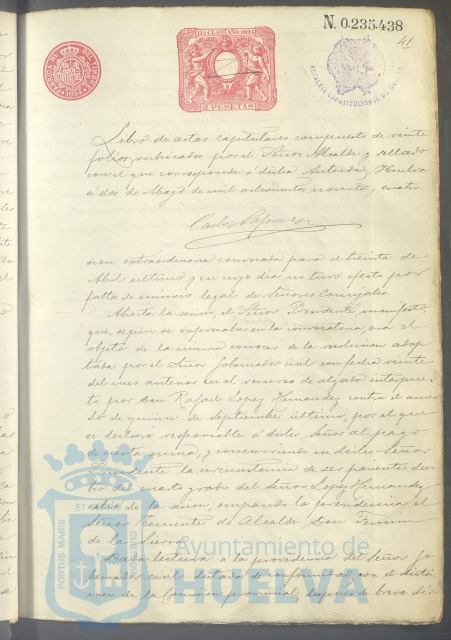 N. 0.235.438
41
FABRICA N. DEL TIMBRE
11ª CLASE AÑO 1894
2 PESETAS
ALCALDIA CONSTITUCIONAL DE
Libro de actas capitulares compuesto de veinte
folios rubricados por el Señor Alcalde y sellado
con el que corresponde á dicha Autoridad. Huelva
á dos de Mayo de mil ochocientos noventa y cuatro
Carlos
sion extraordinaria convocada para el treinta de
Abril último y en cuyo dia no tuvo efecto por
falta de número legal de Señores Concejales.
Abierta la sesion, el Señor Presidente manifestó,
que, según se expresaba en la convocatoria, era el
objeto de la misma conocer de la resolucion adop
tada por el Señor Gobernador civil con fecha veinte
del mes anterior en el recurso de alzada interpues
to por Don Rafael Lopez Hernandez contra el acuer
do de quince de Septiembre último, por el que
se declaró responsable á dicho Señor al pago
de cierta suma, y concurriendo en dicho Señor
Presidente la circunstancia de ser pariente den
tro del cuarto grado del Señor Lopez Hernandez
salió de la sesion, ocupando la presidencia el
Señor Teniente de Alcalde Don Fermin
de la Sierra.
Dada lectura á la providencia del Señor Go
bernador civil dictada de conformidad con el dictá
men de la Comision provincial, despues de breve dis
PORTUS MARIS ET TERRAE CUSTODIA
Ayuntamiento de
HUELVA